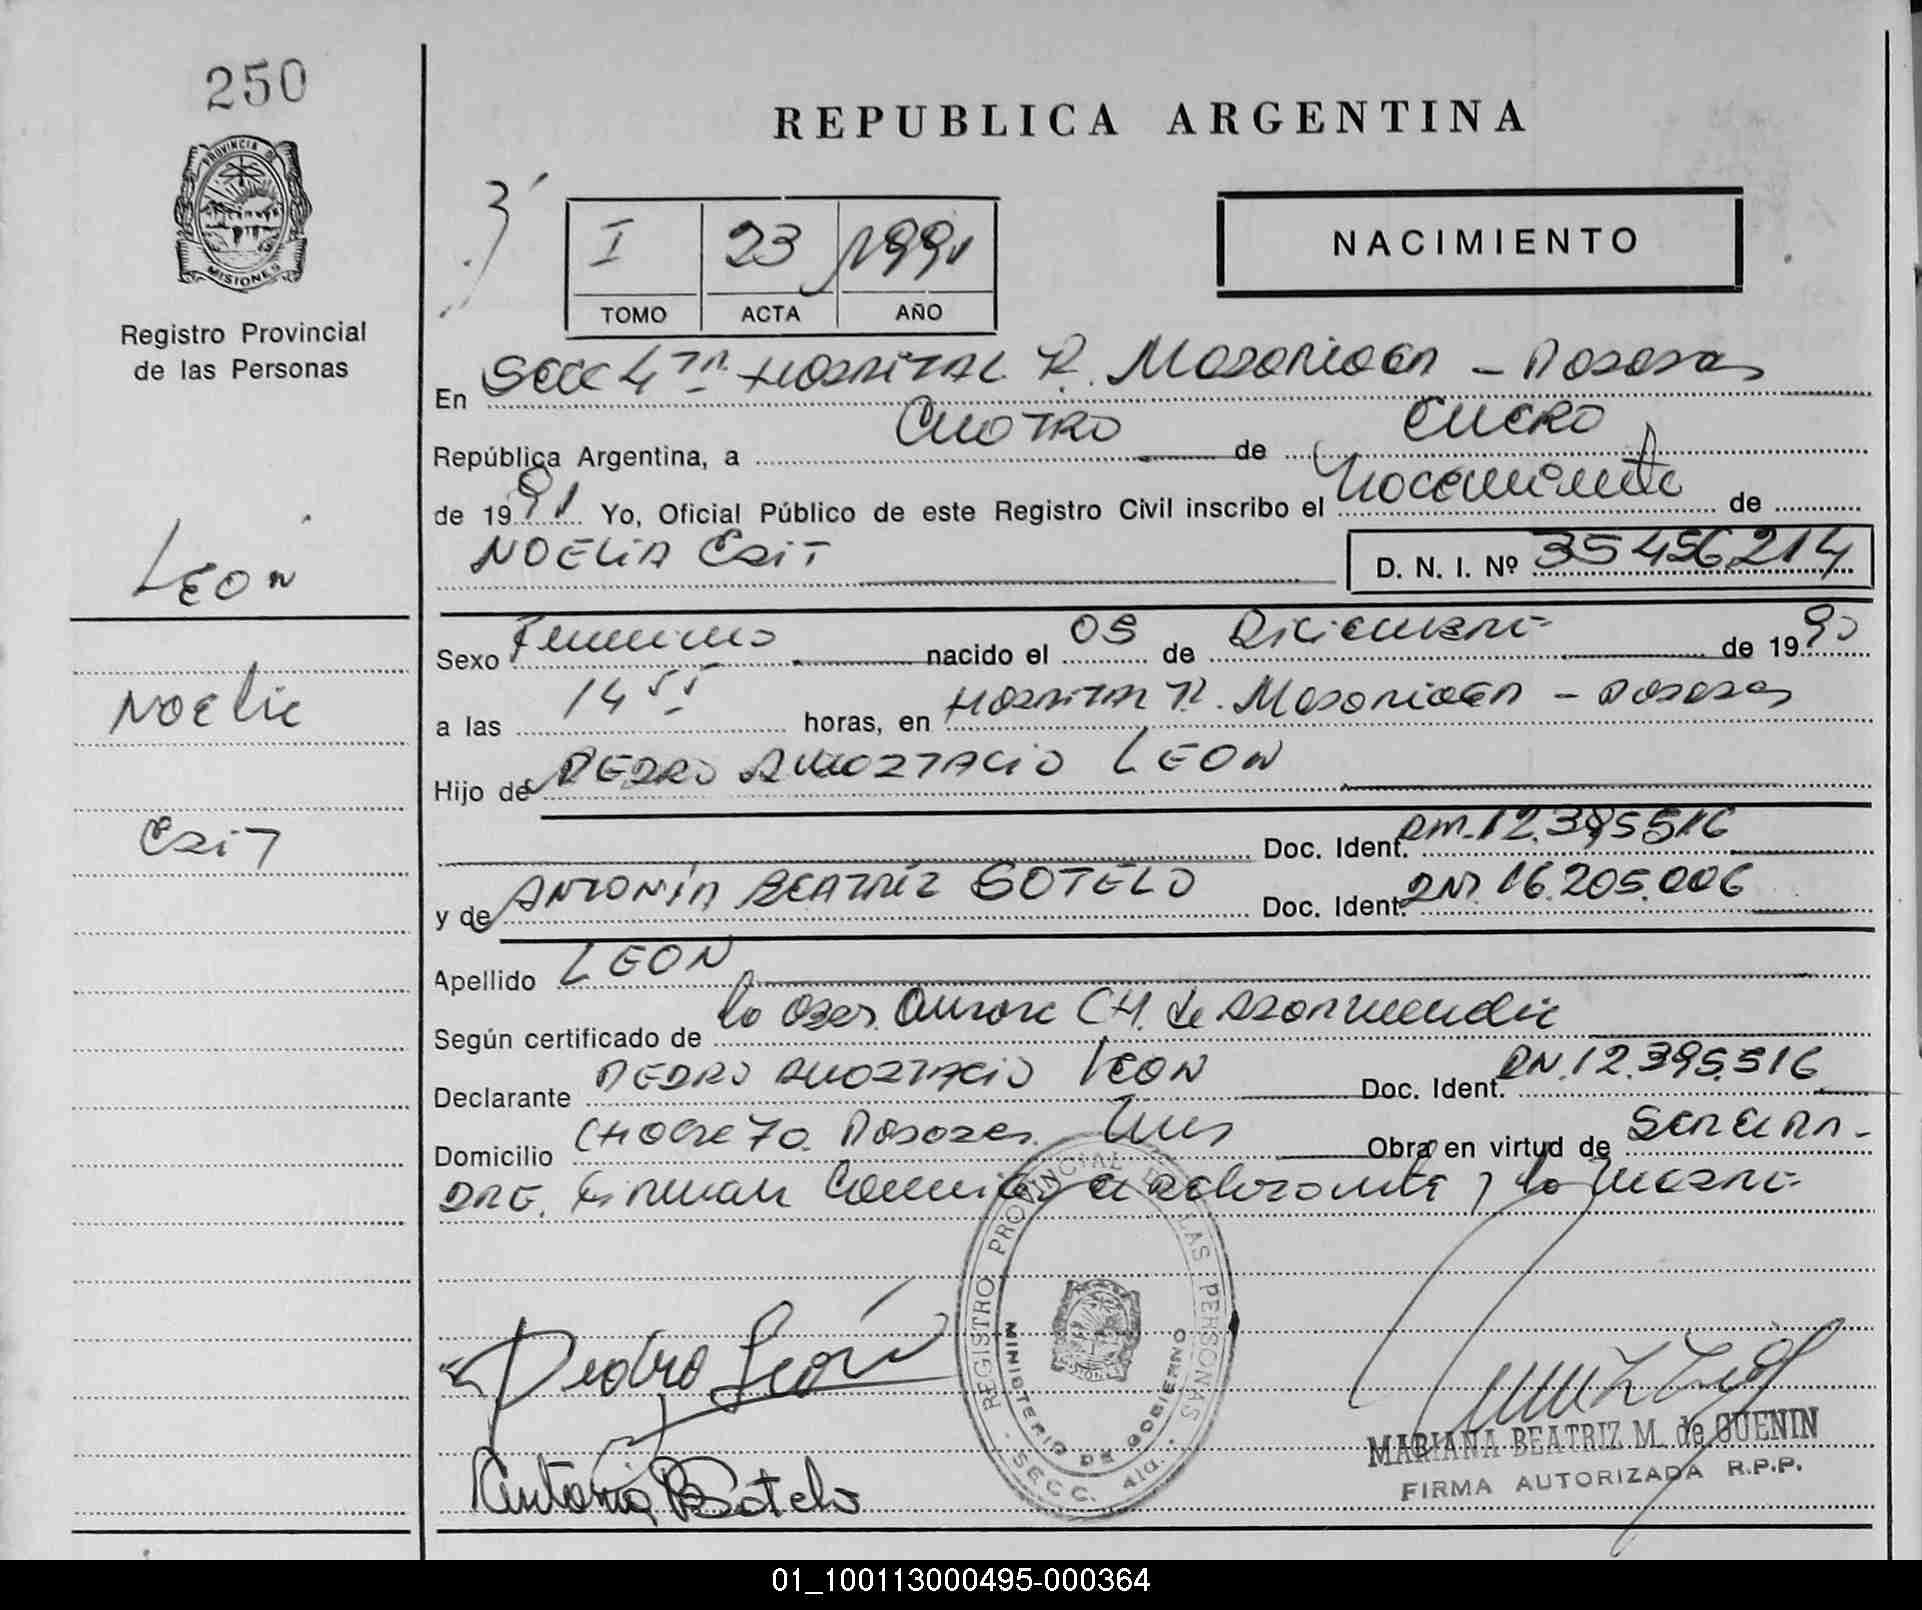 250
PROVINCIA DE
MISIONES
Registro Provincial
de las Personas
LEON
NOELIA
EDIT
REPUBLICA ARGENTINA
I 23 1991
TOMO ACTA AÑO
NACIMIENTO
En SECC 4ta HOSPITAL R. MADARIAGA - POSADAS
República Argentina, a CUATRO de ENERO
de 1991 Yo, Oficial Público de este Registro Civil inscribo el nacimiento de
NOELIA EDIT D. N. I. Nº 35456214
Sexo Femenino nacido el 05 de Diciembre de 1990
a las 14 55 horas, en HOSPITAL R. MADARIAGA - POSADAS
Hijo de PEDRO ANASTACIO LEON
Doc. Ident. DNI. 12.395516
y de ANTONIA BEATRIZ SOTELO Doc. Ident. DNI 16.205.006
Apellido LEON
Según certificado de la Obst. Aurora CH. de
Declarante PEDRO ANASTACIO LEON Doc. Ident. DNI. 12.395.516
Domicilio CHACRA 70. POSADAS. Mnes Obra en virtud de SER EL PA-
DRE. Firman conmigo el declarante y la madre
Pedro León
Antonia B Sotelo
REGISTRO PROVINCIAL DE LAS PERSONAS
MINISTERIO DE GOBIERNO
SECC. 4ta.
MARIANA BEATRIZ M. de GUENIN
FIRMA AUTORIZADA R.P.P.
01_100113000495-000364